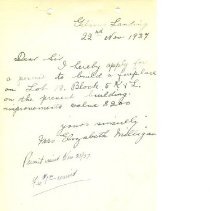 Landing
22nd Nov 1937
Dear Sir
I hereby apply for
a permit to build a fireplace
on Lot 19, Block 5 R & L.
on the present building.
improvements value $200
yours sincerely
Mrs Elizabeth Milligan
Permit issued Nov 23/37